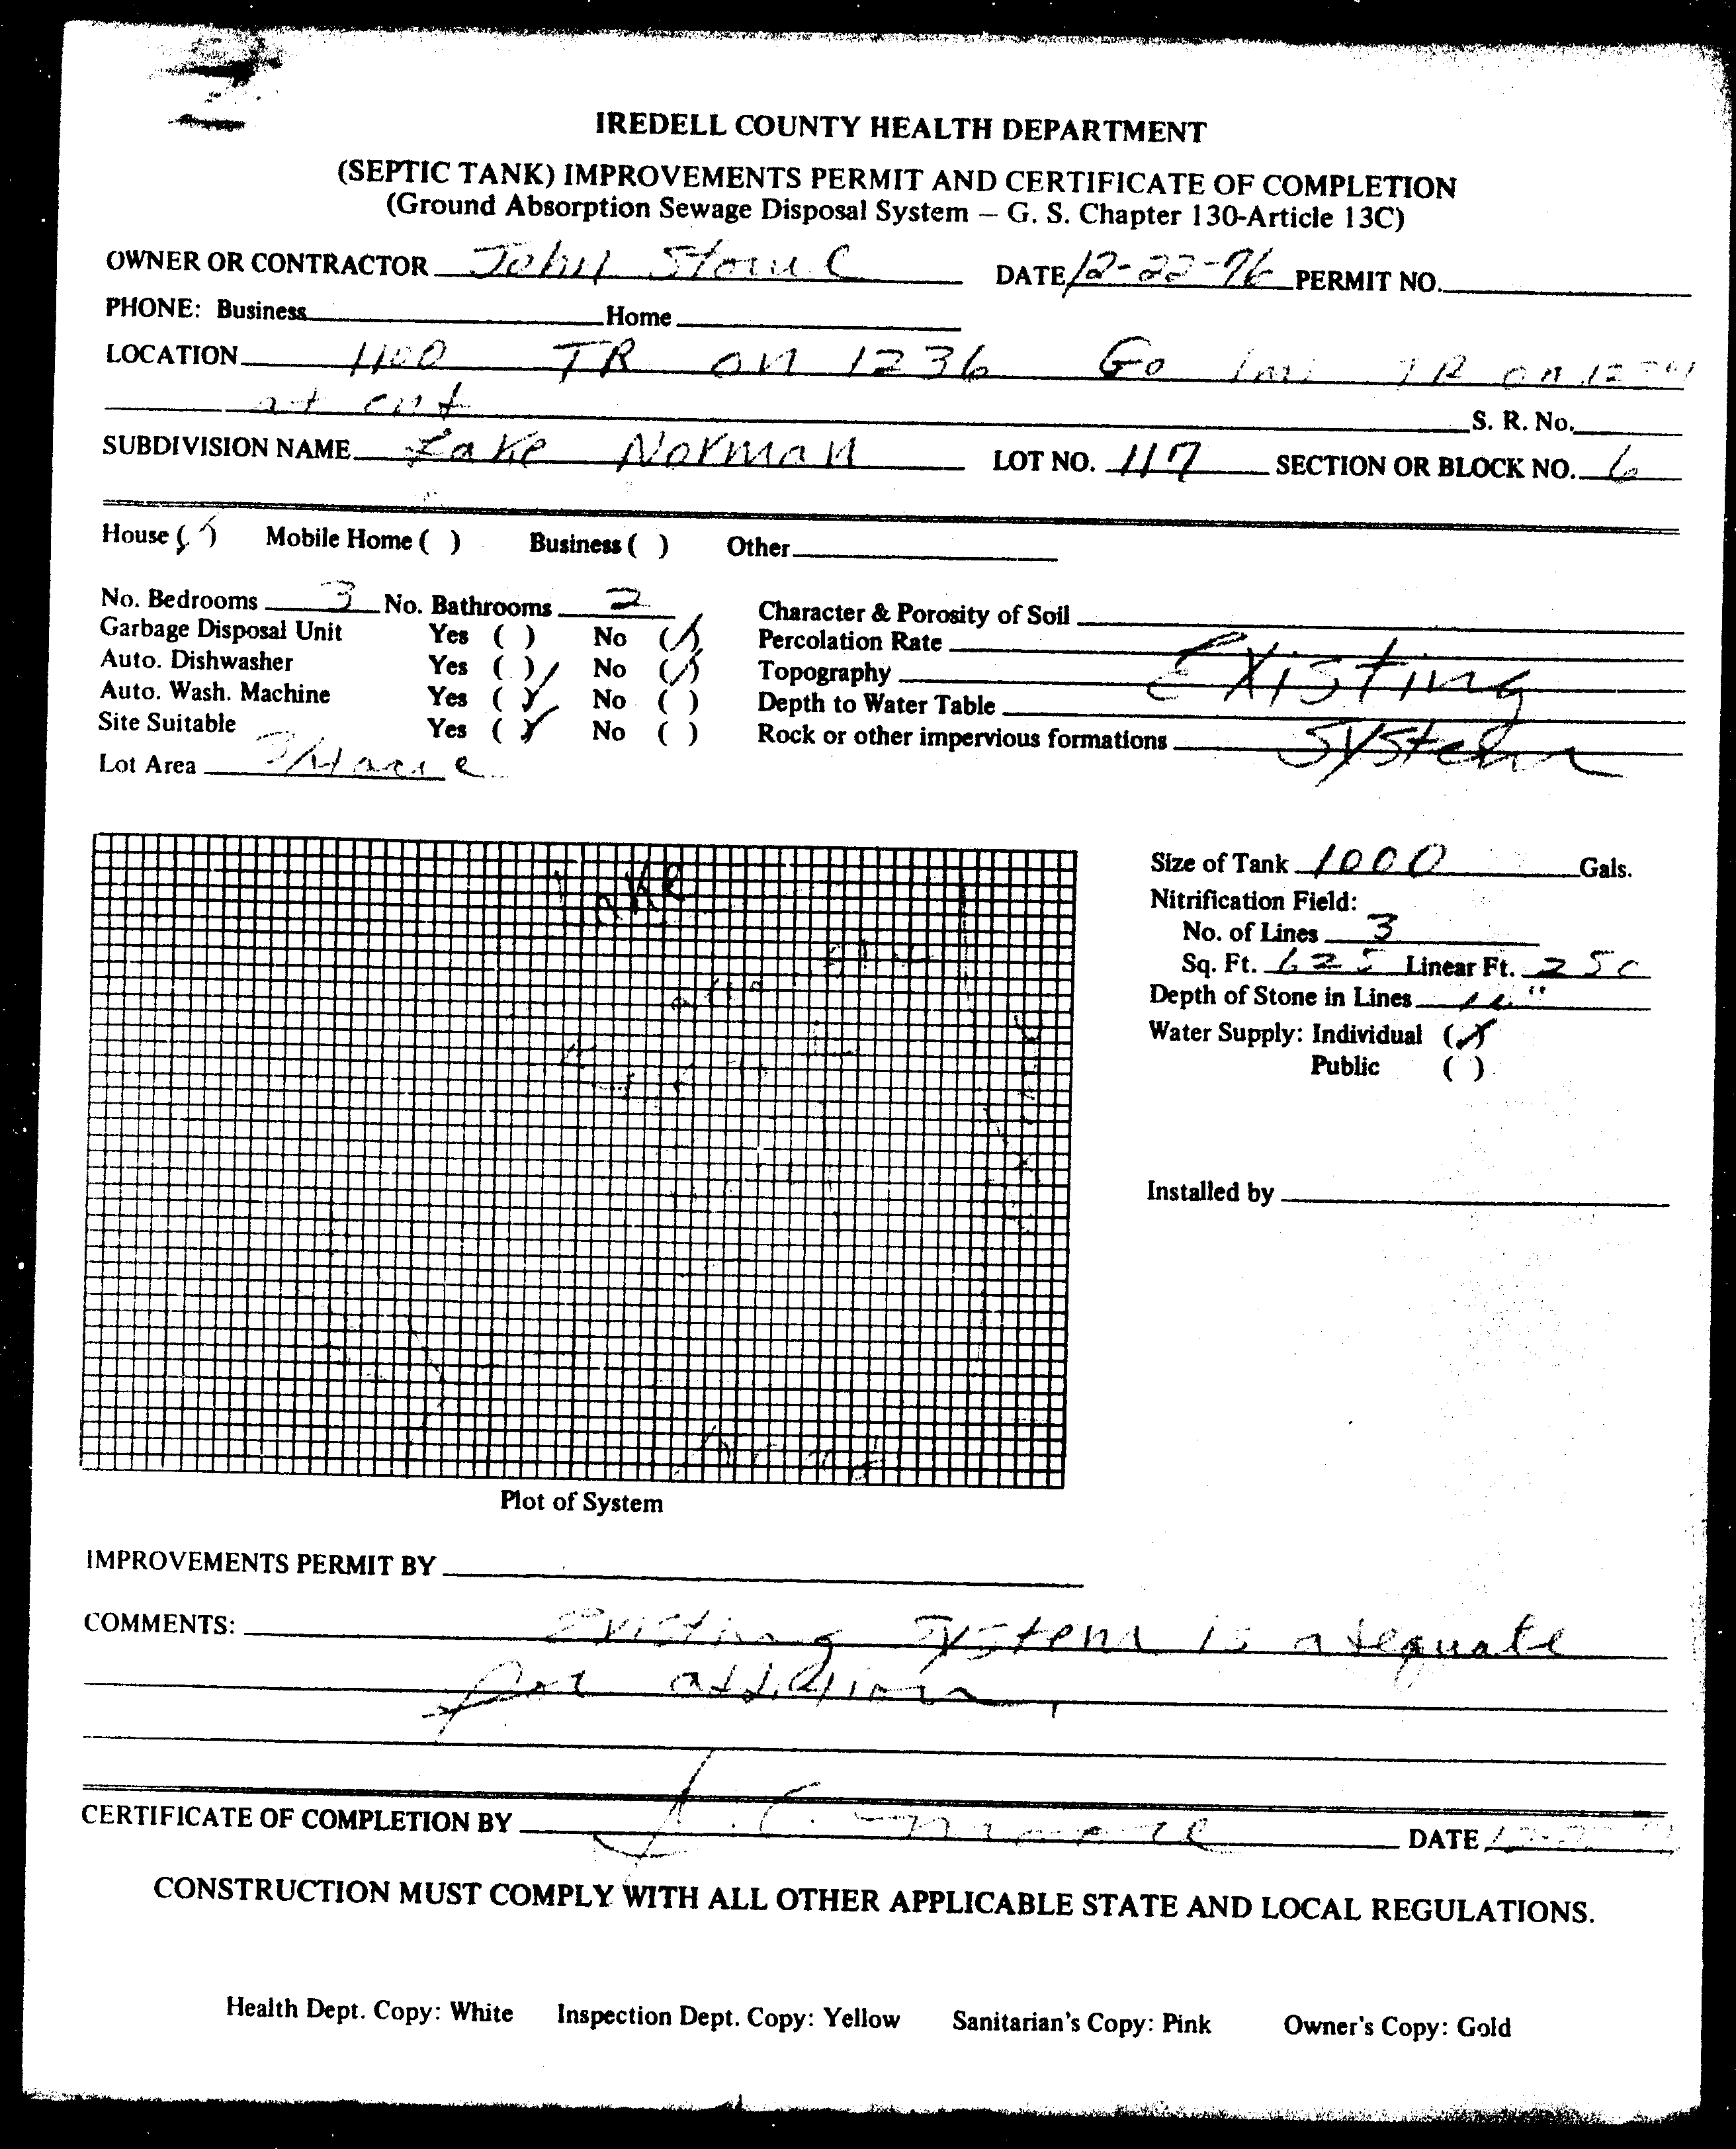 IREDELL COUNTY HEALTH DEPARTMENT
(SEPTIC TANK) IMPROVEMENTS PERMIT AND CERTIFICATE OF COMPLETION
(Ground Absorption Sewage Disposal System – G. S. Chapter 130-Article 13C)
OWNER OR CONTRACTOR John DATE 12-22-76 PERMIT NO.
PHONE: Business Home
LOCATION TR on 1236 Go 1 mi TR on
at end
S. R. No.
SUBDIVISION NAME Lake Norman LOT NO. 117 SECTION OR BLOCK NO. 6
House (✓) Mobile Home ( ) Business ( ) Other
No. Bedrooms 3 No. Bathrooms 2 Character & Porosity of Soil
Garbage Disposal Unit Yes ( ) No (✓) Percolation Rate Existing
Auto. Dishwasher Yes ( ) No (✓) Topography
Auto. Wash. Machine Yes (✓) No ( ) Depth to Water Table
Site Suitable Yes (✓) No ( ) Rock or other impervious formations System
Lot Area 3/4 acre
Lake
Size of Tank 1000 Gals.
Nitrification Field:
No. of Lines 3
Sq. Ft. 625 Linear Ft. 250
Depth of Stone in Lines
Water Supply: Individual (✓)
Public ( )
Installed by
Plot of System
IMPROVEMENTS PERMIT BY
COMMENTS: Existing System is adequate
for addition.
CERTIFICATE OF COMPLETION BY DATE
CONSTRUCTION MUST COMPLY WITH ALL OTHER APPLICABLE STATE AND LOCAL REGULATIONS.
Health Dept. Copy: White Inspection Dept. Copy: Yellow Sanitarian's Copy: Pink Owner's Copy: Gold